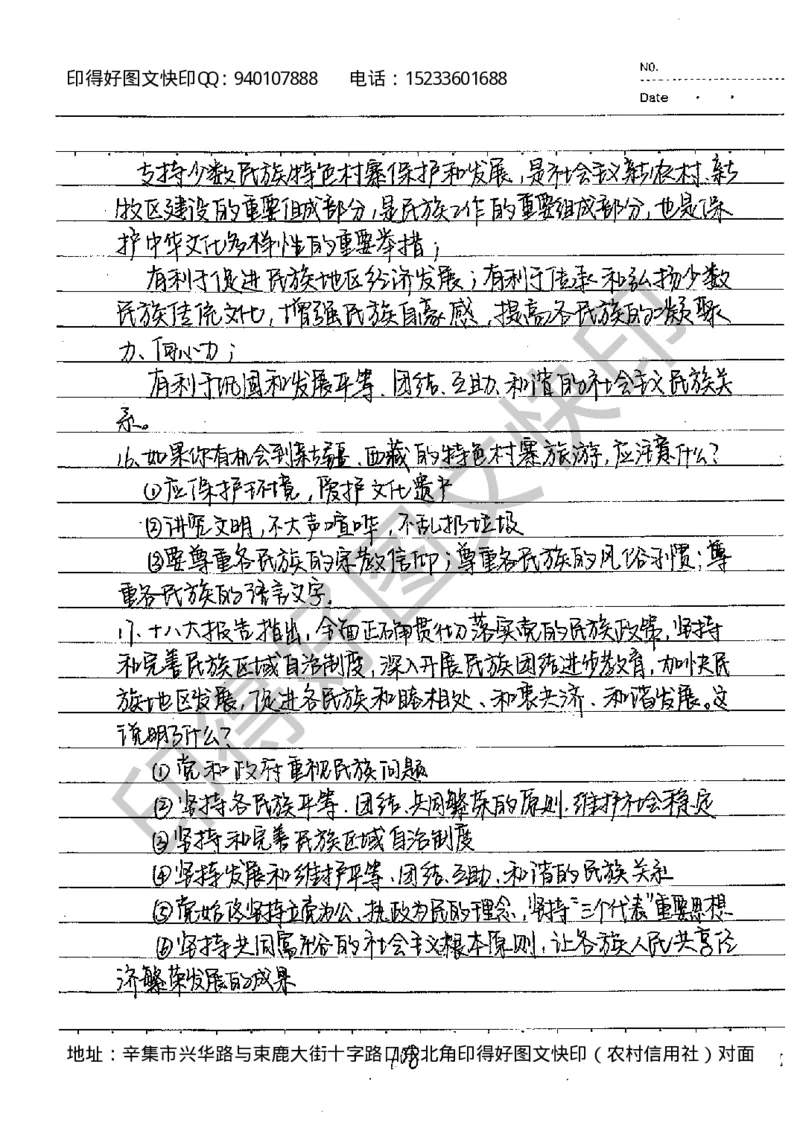 印得好图文快印QQ：940107888 电话：15233601688
NO.
Date
支持少数民族特色村寨保护和发展，是社会主义新农村、新
牧区建设的重要组成部分，是民族工作的重要组成部分，也是保
护中华文化多样性的重要举措；
有利于促进民族地区经济发展；有利于传承和弘扬少数
民族传统文化，增强民族自豪感，提高各民族的凝聚
力、向心力；
有利于巩固和发展平等、团结、互助、和谐的社会主义民族关
系。
16、如果你有机会到新疆、西藏的特色村寨旅游，应注意什么？
①应保护环境，爱护文化遗产
②讲究文明，不大声喧哗，不乱扔垃圾
③要尊重各民族的宗教信仰；尊重各民族的风俗习惯；尊
重各民族的语言文字.
17、十八大报告指出，全面正确贯彻落实党的民族政策，坚持
和完善民族区域自治制度，深入开展民族团结进步教育，加快民
族地区发展，促进各民族和睦相处、和衷共济、和谐发展。这
说明了什么？
①党和政府重视民族问题
②坚持各民族平等、团结、共同繁荣的原则.维护社会稳定
③坚持和完善民族区域自治制度
④坚持发展和维护平等、团结、互助、和谐的民族关系
⑤党始终坚持立党为公、执政为民的理念，坚持“三个代表”重要思想
⑥坚持共同富裕的社会主义根本原则，让各族人民共享经
济繁荣发展的成果
地址：辛集市兴华路与束鹿大街十字路口东北角印得好图文快印（农村信用社）对面
108
印得好图文快印